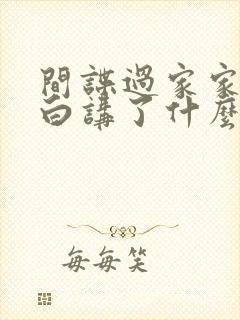 間諜過家家
白講了什麼
每每笑